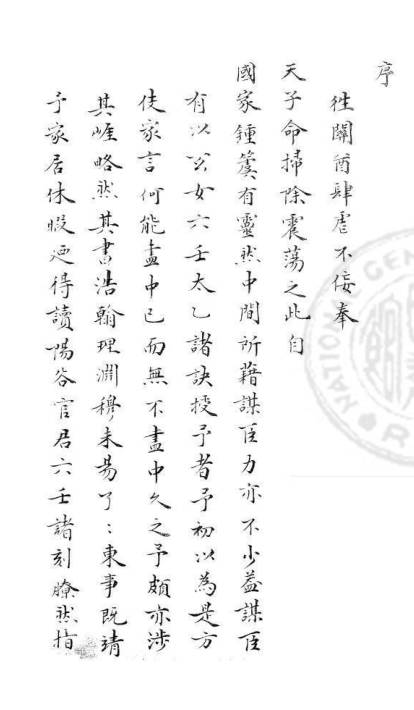 序
往關酋肆虐不佞奉
天子命掃除震蕩之此自
國家鍾虡有靈然中間所藉謀臣力亦不少葢謀臣
有以女六壬太乙諸訣授予者予初以為是方
伎家言何能盡中已而無不盡中久之予頗亦涉
其崕略然其書浩翰理淵穆未易了〻東事既靖
予家居休暇廼得讀陽谷官居六壬諸刻瞭然指
NATIONAL GEN